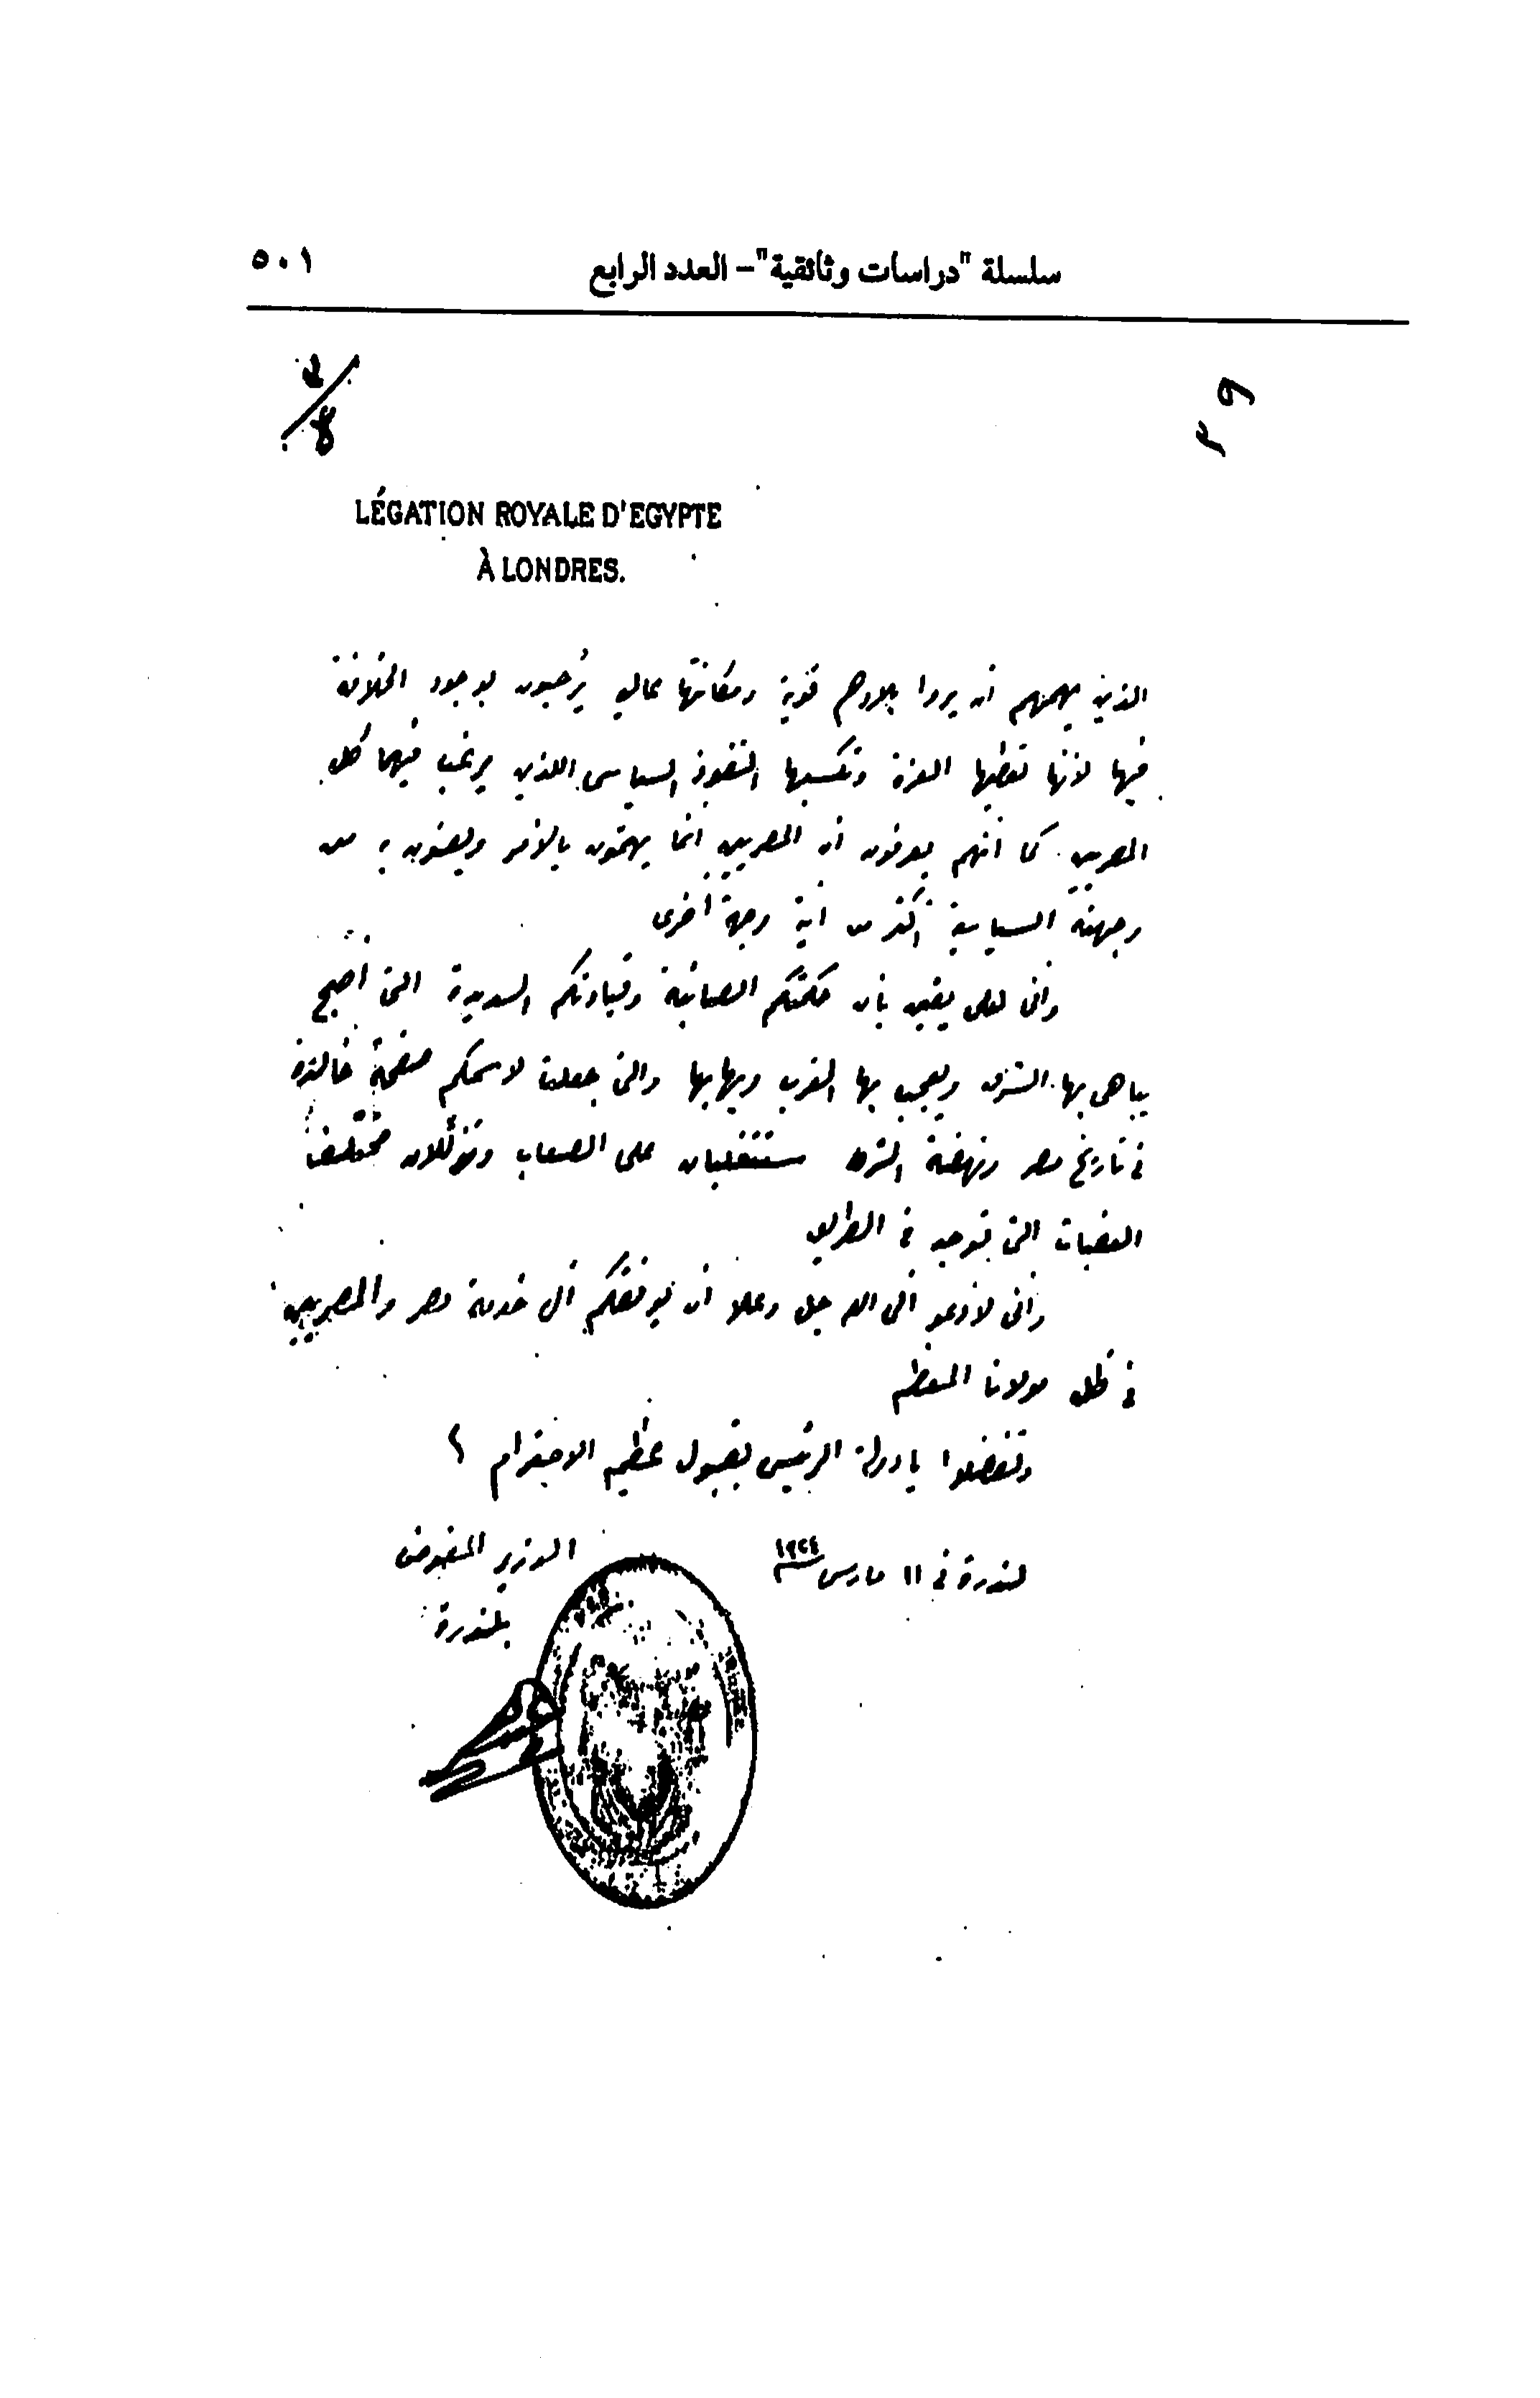 سلسلة "دراسات وثائقية"– العدد الرابع ٥٠١
LÉGATION ROYALE D'EGYPTE
À LONDRES.
الذين يهمهم أن يروا بلادهم قوية ومكانتها عالية يرحبون بوجود الخلافة
فيها لأنها تعطيها العزة وتكسبها النفوذ السياسى اللذين يرغب فيهما كل
المصريين. كما أنهم يعرفون أن المصريين انما يهتمون بالأمر ويعنون به من
وجهته السياسية أكثر من أية وجهة أخرى
وانى لعلى يقين بأن حكمتكم الصائبة وقيادتكم السديدة التى أصبح
يباهى بها الشرق ويعجب بها الغرب ويهابها والتى جعلت لاسمكم صفحة خالدة
فى تاريخ مصر ونهضة الشرق ستتغلبان على الصعاب وتذللان مختلف
العقبات التى توجد فى الطريق
وانى لأدعو الى الله جل وعلا أن يوفقكم الى خدمة مصر والمصريين
فى ظل مولانا المعظم
وتفضلوا يا دولة الرئيس بقبول عظيم الاحترام
لندرة فى ١١ مارس ١٩٢٤
الوزير المفوض
بلندرة